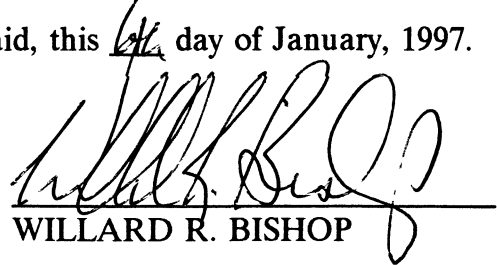 aid, this 6th day of January, 1997.
Willard R. Bishop
WILLARD R. BISHOP